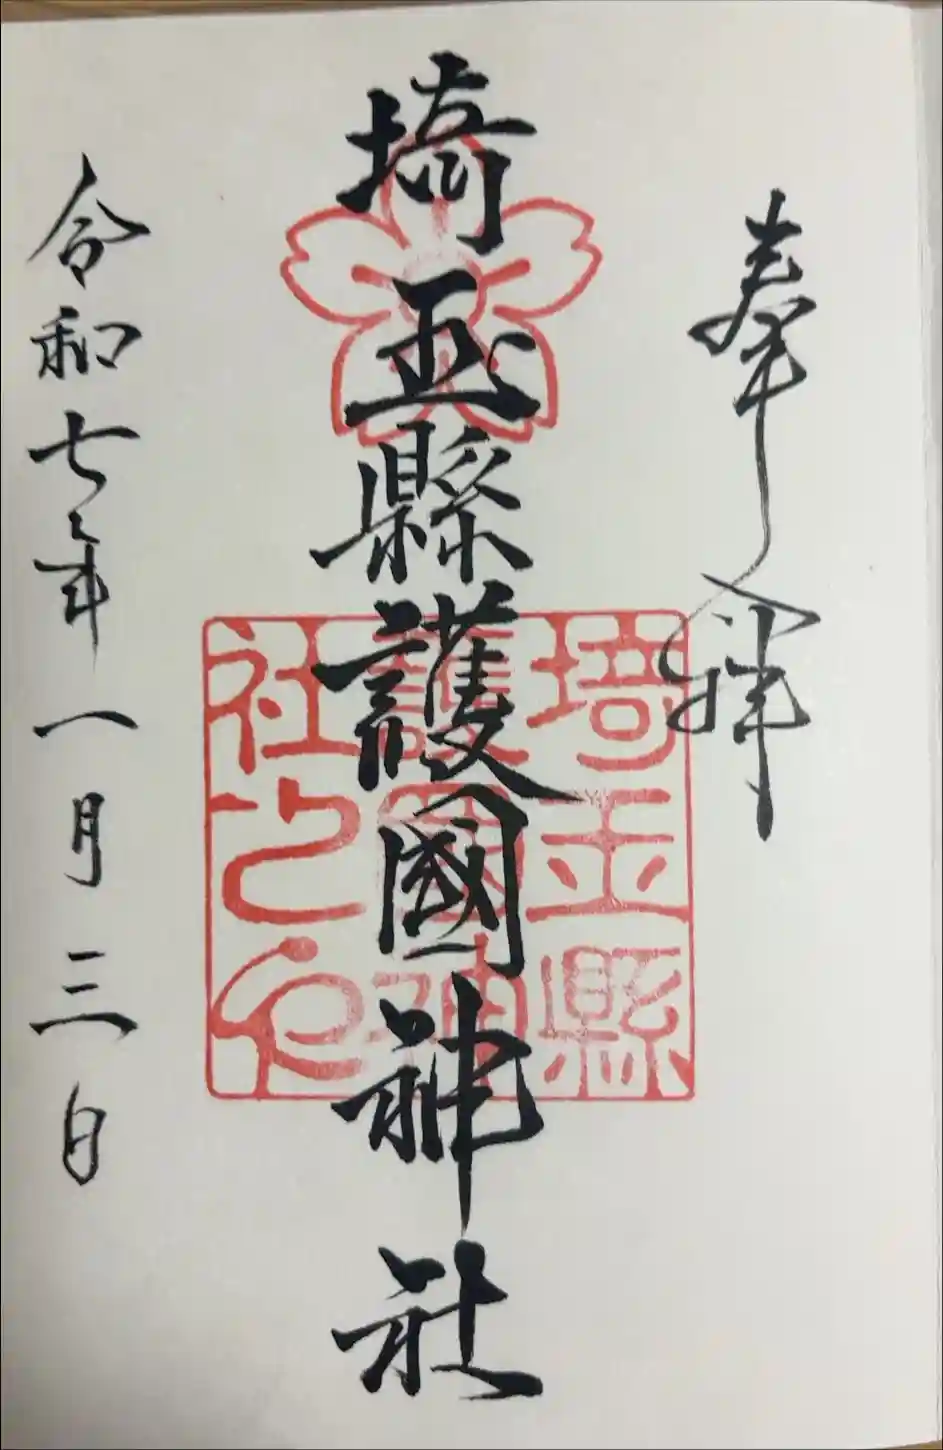 奉拝
埼玉縣護國神社
埼玉縣護國神社之印
令和七年一月三日